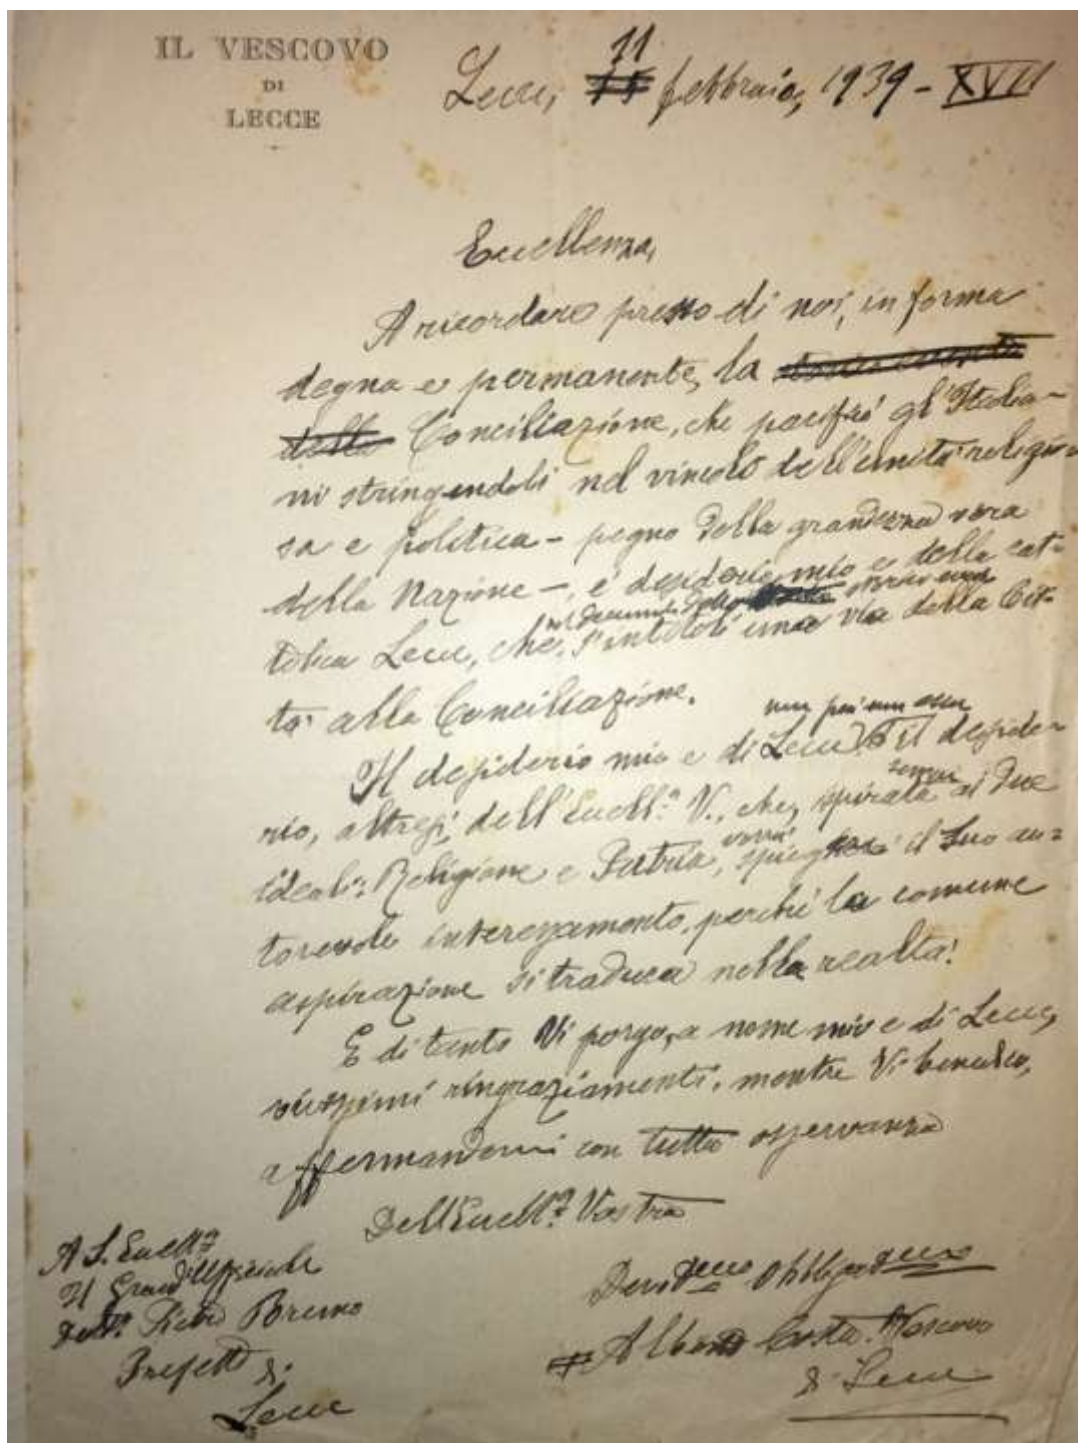 IL VESCOVO
DI
LECCE
Lecce, 11 febbraio, 1939 - XVII
Eccellenza,
A ricordare presso di noi, in forma
degna e permanente, la
della Conciliazione, che pacificò gl'Italia-
ni stringendoli nel vincolo dell'unità religio-
sa e politica - pegno della grandezza vera
della Nazione -, è desiderio mio e della cat-
nel decennale dello storico evento
tolica Lecce, che, s'intitoli una via della Cit-
tà alla Conciliazione.
non può non essere
Il desiderio mio e di Lecce il deside-
rio, altresì, dell'Eccell.za V., che, ispirata sempre ai due
ideali: Religione e Patria, vorrà spiegare il Suo au-
torevole interessamento, perché la comune
aspirazione si traduca nella realtà!
E di tanto Vi porgo, a nome mio e di Lecce,
vivissimi ringraziamenti, mentre Vi benedico,
affermandomi con tutta osservanza
Dell'Eccell.za Vostra
Dev.mo Obbligat.mo
Alberto Costa Vescovo
di Lecce
A S. Eccell.za
Il Grand'Ufficiale
Dott. Pietro Bruno
Prefetto di
Lecce